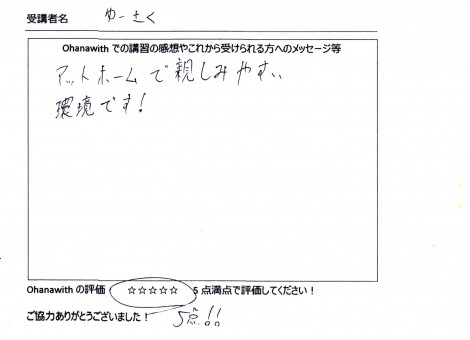 受講者名 ゆーさく
Ohanawith での講習の感想やこれから受けられる方へのメッセージ等
アットホームで親しみやすい
環境です!
Ohanawith の評価 ☆☆☆☆☆ 5 点満点で評価してください!
ご協力ありがとうございました! 5点!!